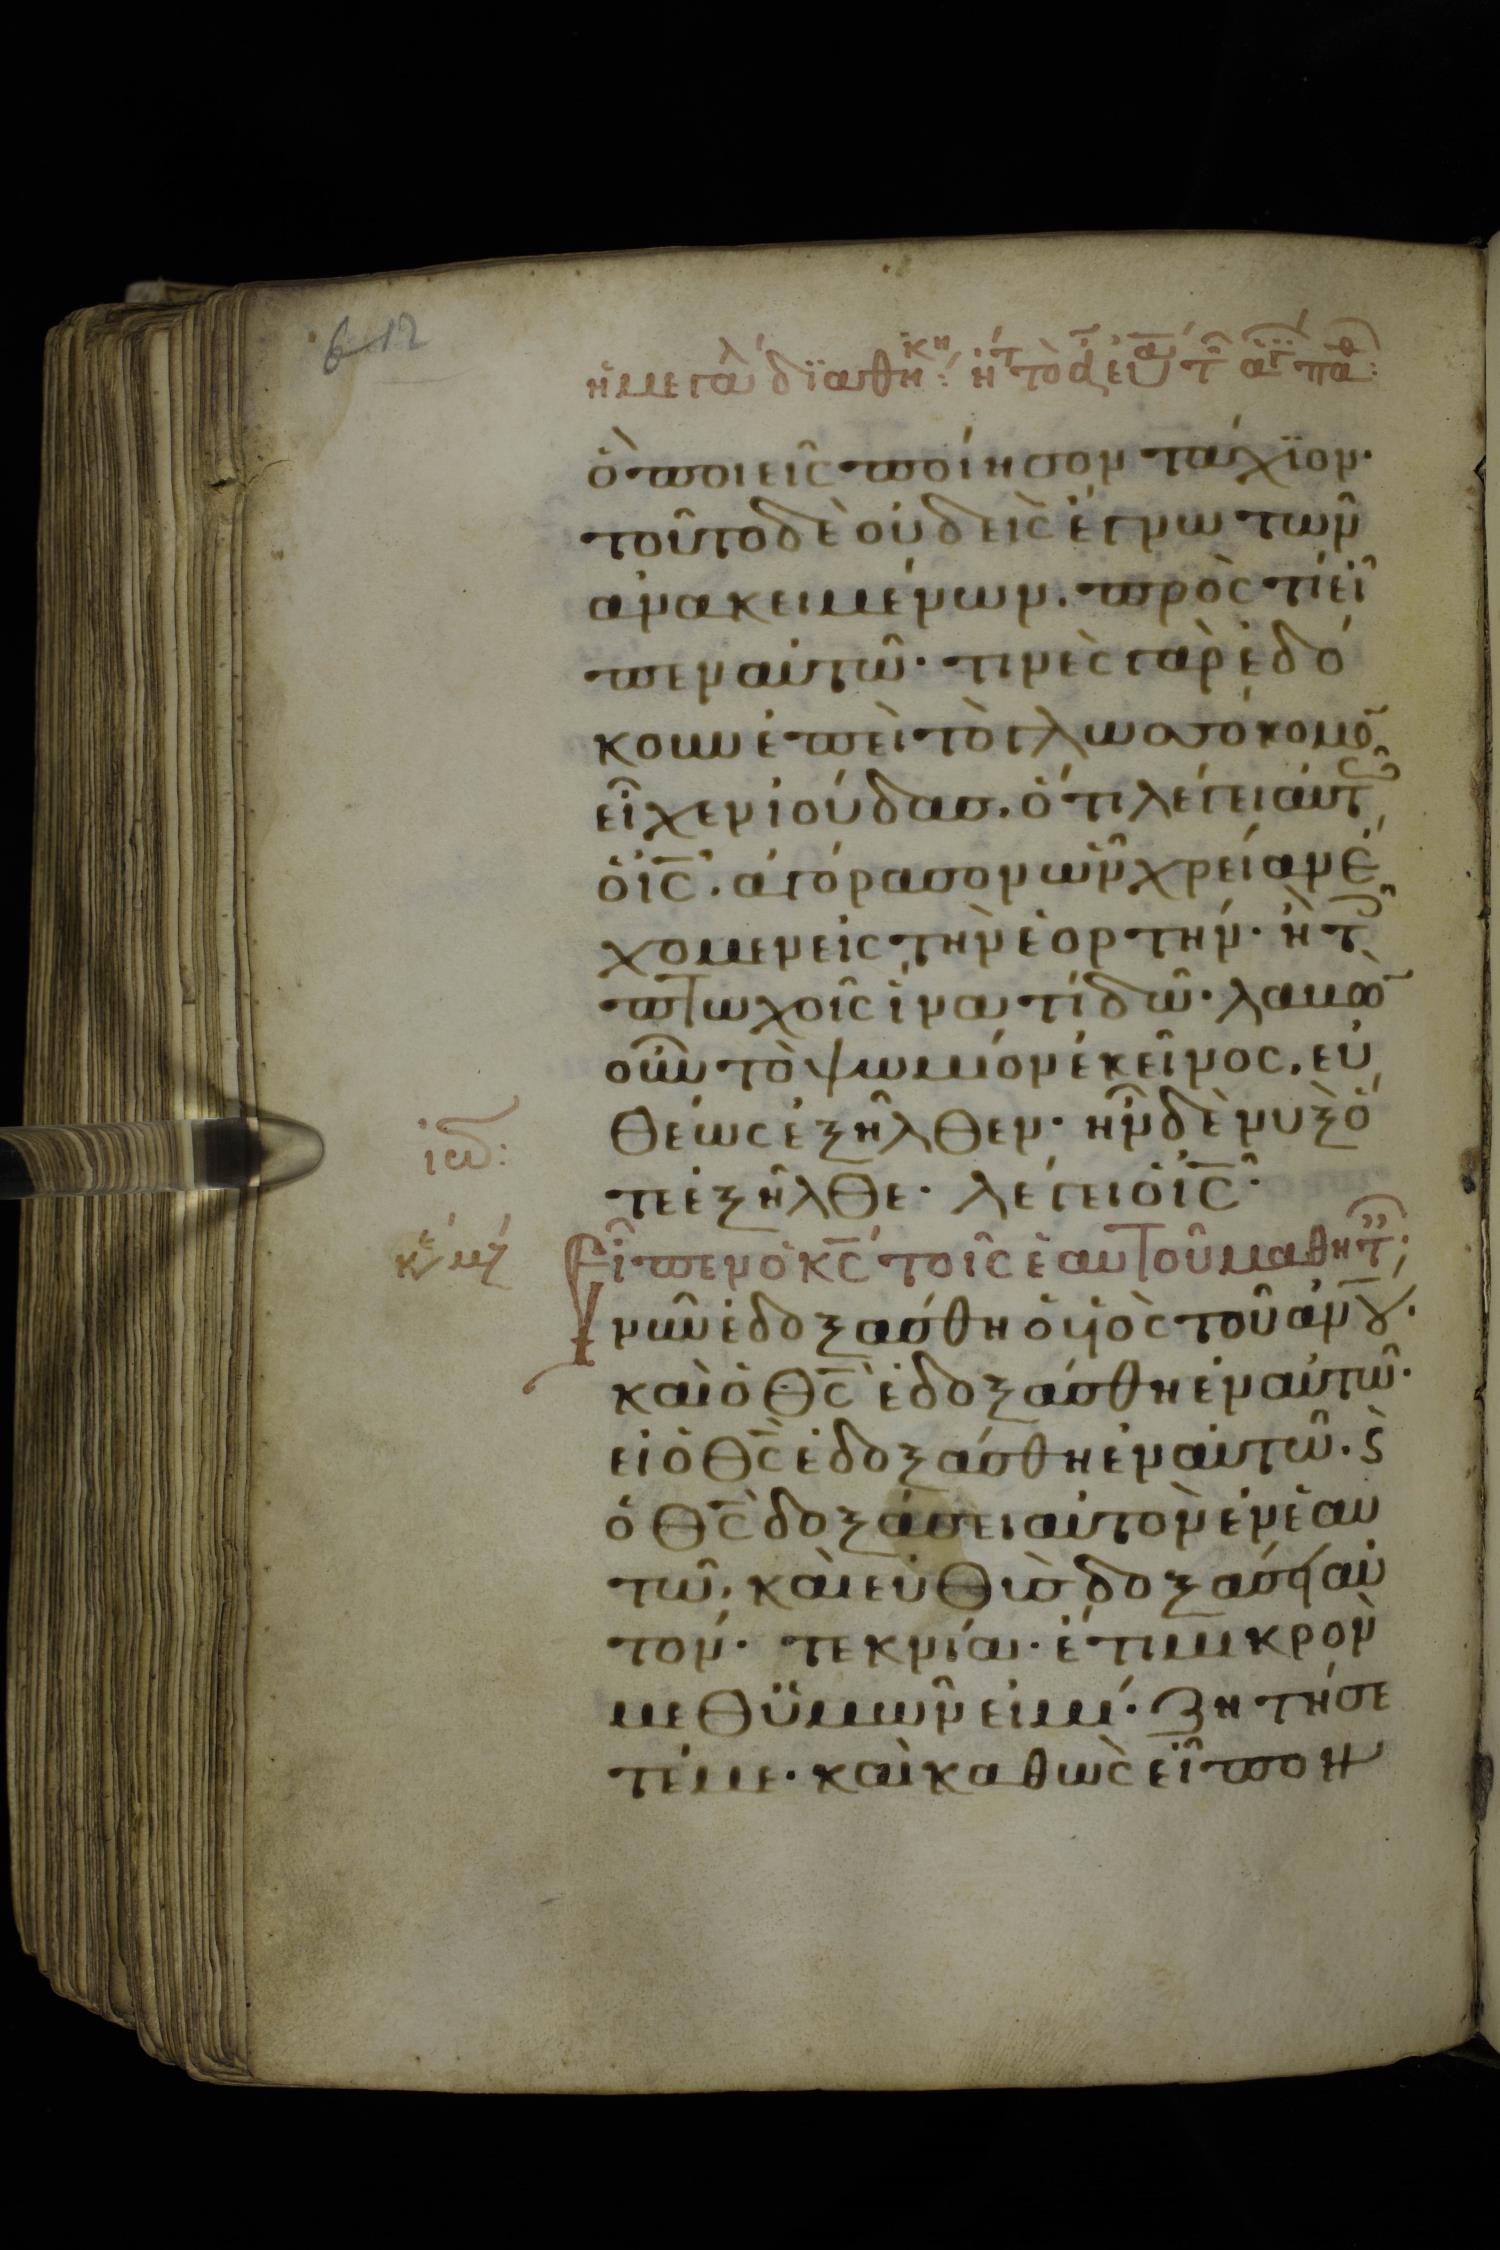 ἡ μεγάλ διαθήκη: ἤτ τὸ αον εὐα τ ἁγι παθ:
ὃ ποιεῖς ποίησον τάχϊον·
τοῦτο δὲ οὐδεὶς ἔγνω τῶν
ἀνακειμένων. πρὸς τί εἶ
πεν αὐτῶ· τινὲς γὰρ ἐδό
κουν ἐπεὶ τὸ γλωσσόκομον
εἶχεν ἰούδασ. ὅτι λέγει αὐτῶ
ὁ ις. ἀγόρασον ὧν χρείαν ἔ
χομεν εἰς τὴν ἑορτήν· ἢ τοῖς
πτωχοῖς ἵνα τί δῶ· λαβὼν
οὖν τὸ ψωμίον ἐκεῖνος. εὐ
θέως ἐξῆλθεν· ἦν δὲ νὺξ ὅ
τε ἐξῆλθε· λέγει ὁ ις·
ἰω:
κε μζ
Εἶπεν ὁ κς τοῖς ἑαυτοῦ μαθητ·
Νῦν ἐδοξάσθη ὁ υἱὸς τοῦ ἀνου·
καὶ ὁ θς ἐδοξάσθη ἐν αὐτῶ·
εἰ ὁ θς ἐδοξάσθη ἐν αὐτῶ. ϛ
ὁ θς δοξάσει αὐτὸν ἐν ἑαυ
τῶ, καὶ εὐθὺσ δοξάσει αὐ
τόν· τεκνία· ἔτι μικρὸν
μεθ ὑμῶν εἰμί· ζητήσε
τέ με· καὶ καθὼς εἶπον